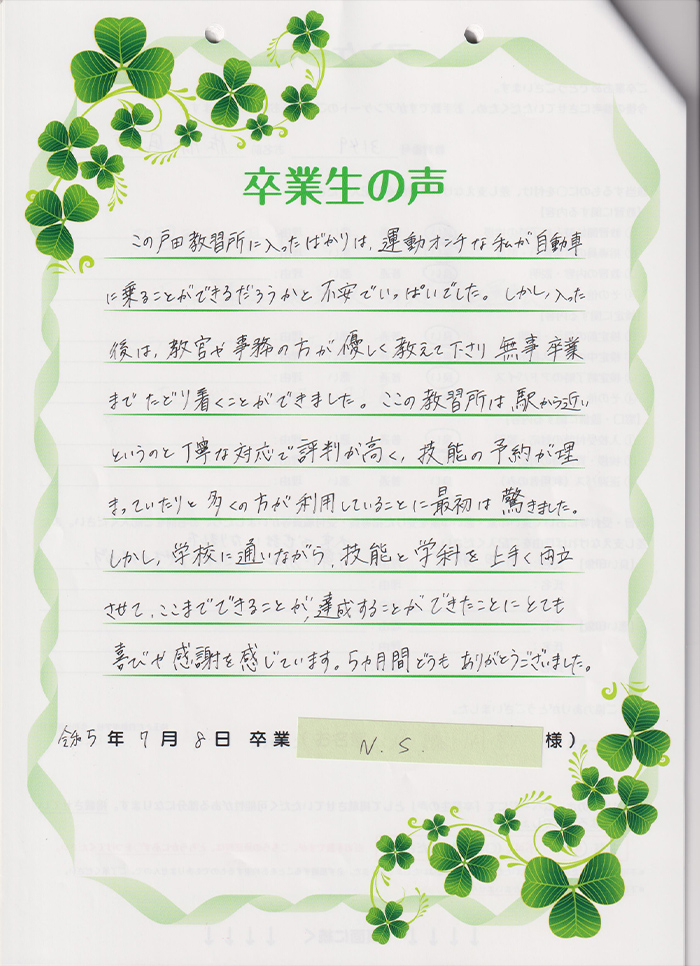 卒業生の声
この戸田教習所に入ったばかりは、運動オンチな私が自動車
に乗ることができるだろうかと不安でいっぱいでした。しかし、入った
後は、教官や事務の方が優しく教えて下さり無事卒業
までたどり着くことができました。ここの教習所は、駅から近い
というのと丁寧な対応で評判が高く、技能の予約が埋
まっていたりと多くの方が利用していることに最初は驚きました。
しかし、学校に通いながら、技能と学科を上手く両立
させて、ここまでできることが、達成することができたことにとても
喜びや感謝を感じています。5ヵ月間どうもありがとうございました。
令和5年7月8日 卒業 N.S. 様)